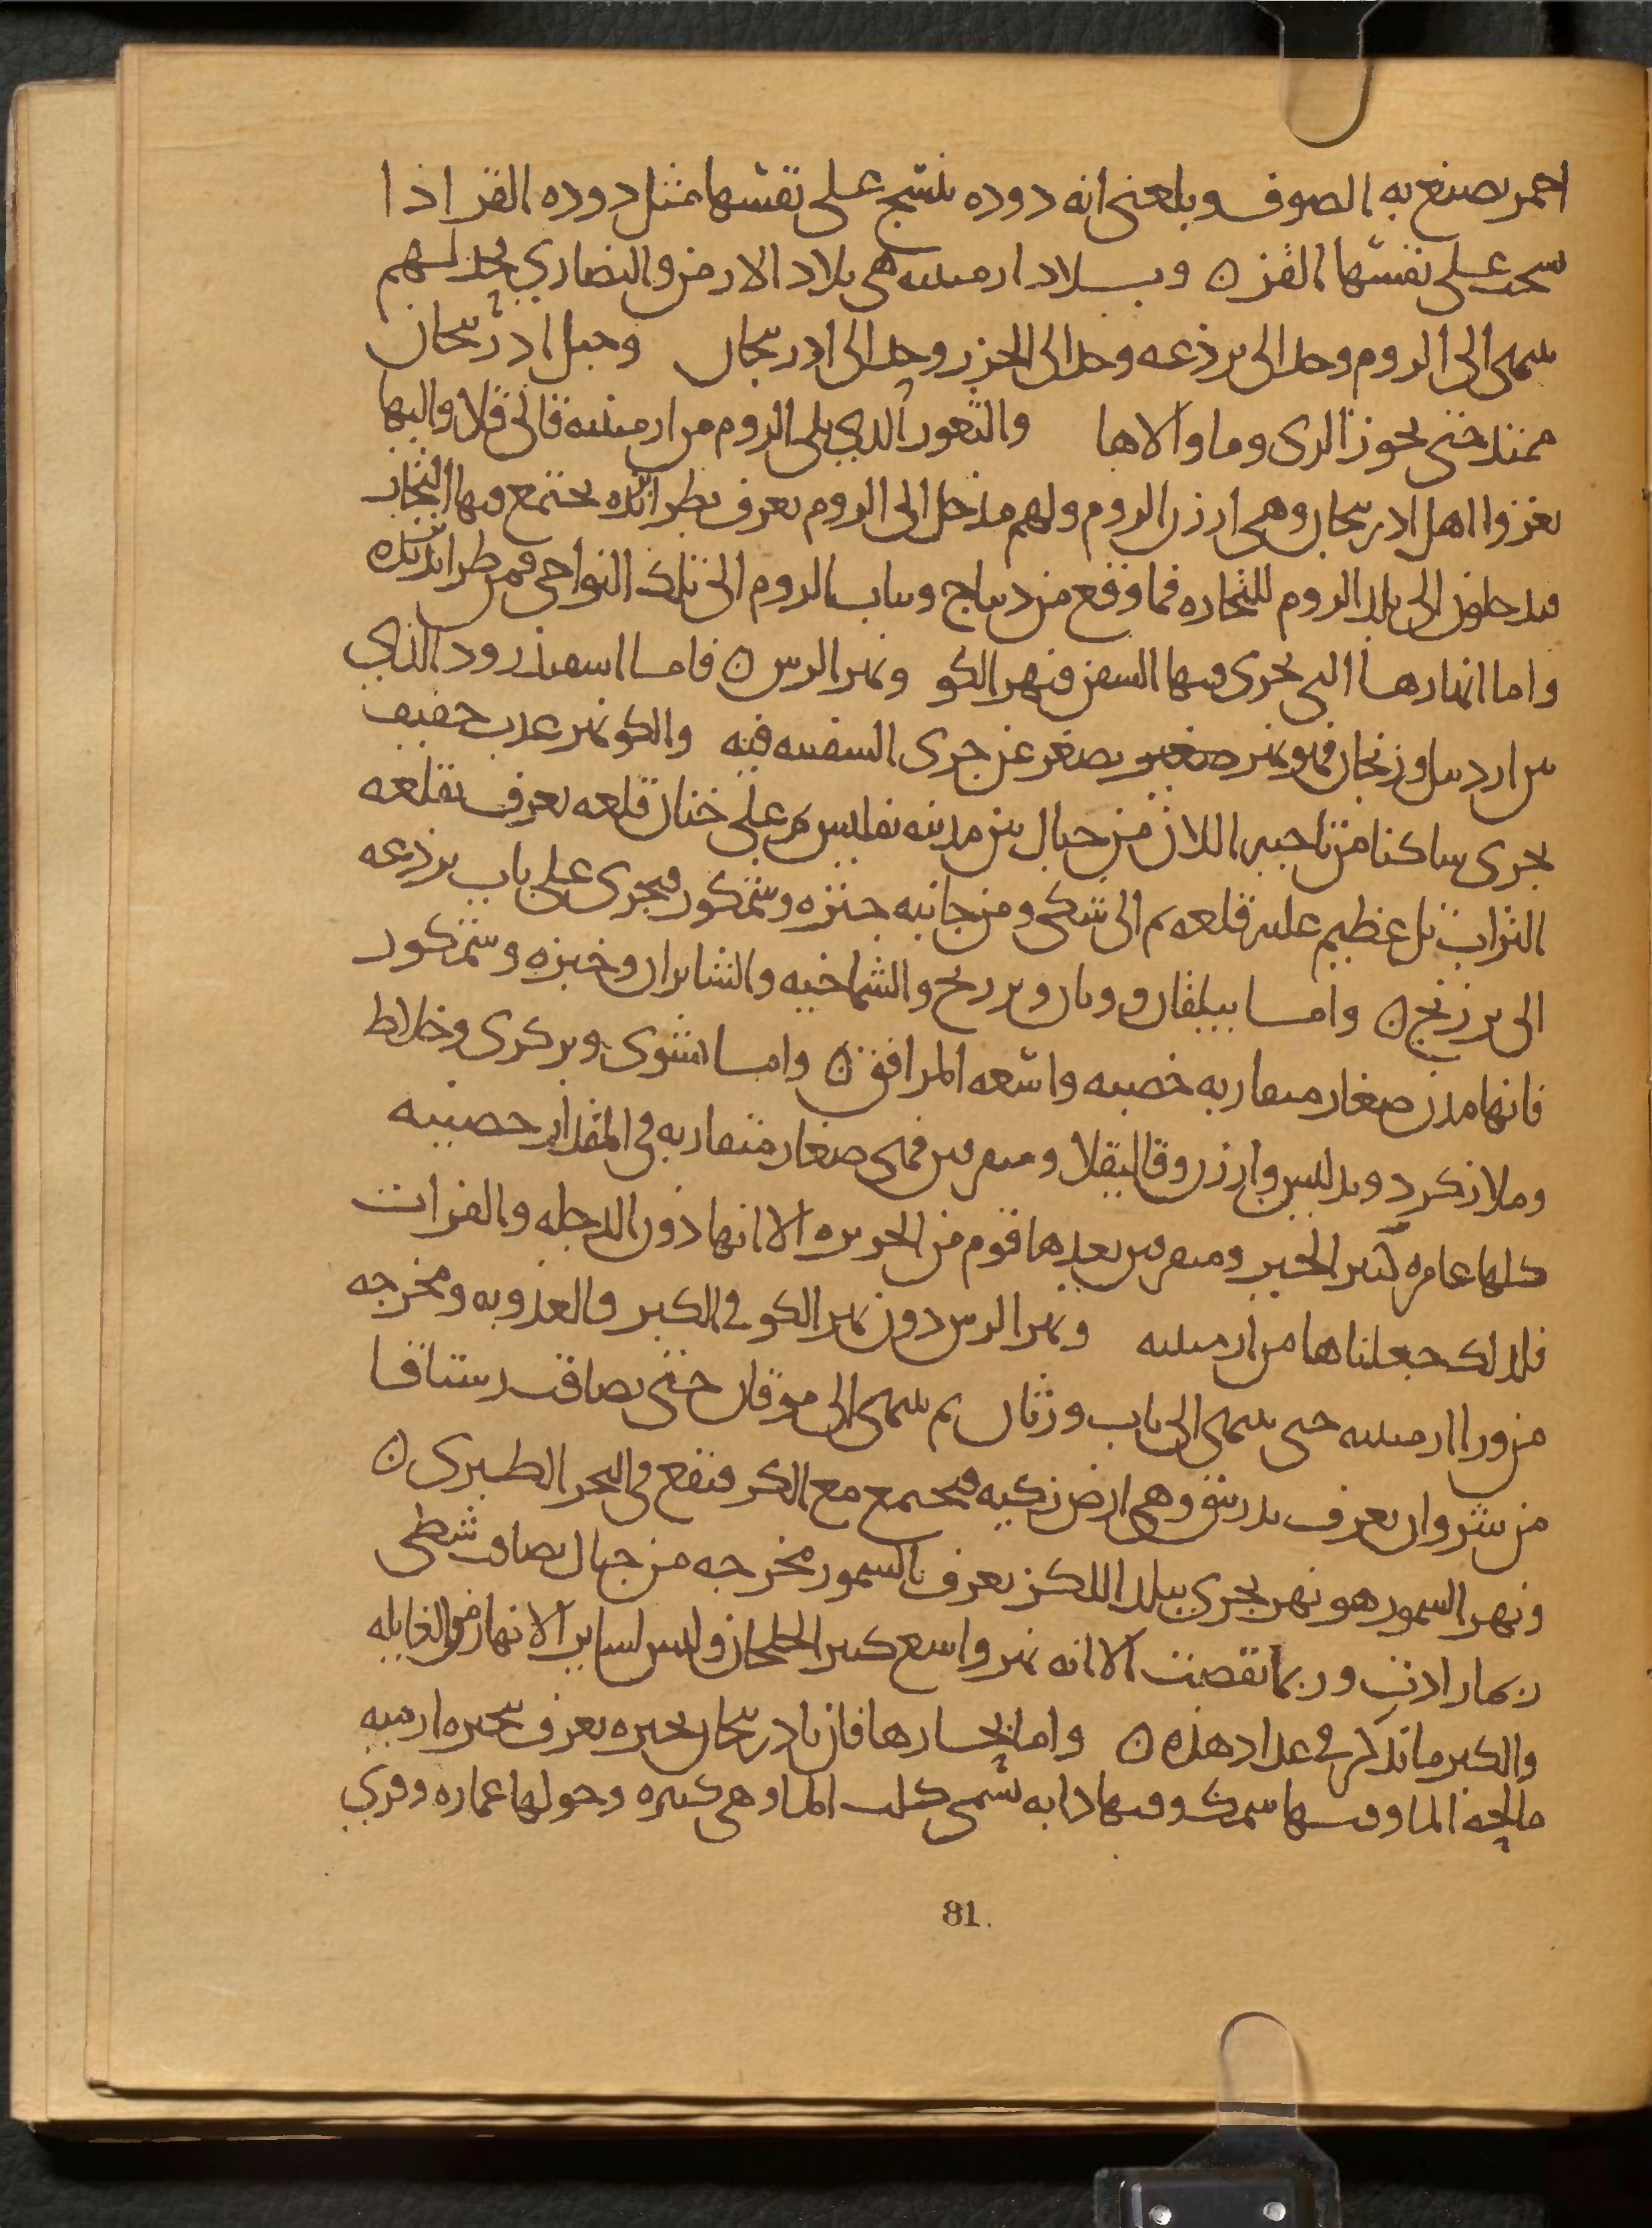 احمر يصبغ به الصوف وبلغنى انه دوده ينسج على نفسها مثل دوده القز اذا
نسجت على نفسها القز ن وبـــلاد ارمينيه هى بلاد الارمن والنصاري بحد لهم
ينتهى الى الروم وحد الى برذعه وحد الى الجزر وحد الى ادربيجان وجبل ادربيجان
ممتد حتى يحوز الرى وما والاها والثغور الدي يلى الروم من ارمينيه قالى قلا واليها
يغزوا اهل ادربيجان وهى ارزن الروم ولهم مدخل الى الروم يعرف بطرابزنده يجتمع فيها التجار
فيدخلون الى بلد الروم للتجاره فما وقع من ديباج وثياب الروم الى تلك النواحى فمن طرابزنده
واما انهارها التى يجرى فيها السفن فنهر الكر ونهر الرس ن فامــا اسفيذرود الذي
بين اردبيل وزنجان فهو نهر صغير يصغر عن جرى السفينه فيه والكر نهر عذب خفيف
يجرى ساكنا من ناحيه اللان من جبال بين مدينه تفليس ثم على خنان قلعه يعرف بقلعه
التراب تل عظيم عليه قلعه ثم الى شكى ومن جانبه جنزه وشمكور فيجرى على باب برذعه
الى برزنج ن وامــا بيلقان وورثان وبرديج والشماخيه والشابران وجنزه وشمكور
فانها مدن صغار متقاربه خصبه واسعه المرافق ن وامــا نشوى وبركرى وخلاط
وملازكرد وبدليس وارزن وقاليقلا وميفرقين فهى صغار متقاربه فى المقدار خصيبه
كلها عامره كثير الخير وميفرقين يعدها قوم من الجزيره الا انها دون الدجله والفرات
فلذلك جعلناها من ارمينيه ونهر الرس دون نهر الكر فى الكبر والعذوبه ومخرجه
من ورا ارمينيه حتى ينتهى الى باب ورثان ثم ينتهى الى موقان حتى يصاقب رستاقــا
من شروان يعرف وهى ارض زكيه فيجتمع مع الكر فيقع فى البحر الطبرى ن
ونهر السمور هو نهر يجري ببلد اللكز يعرف بالسمور مخرجه من جبال يصاقب شطى
ربما زادت وربما نقصت الا انه نهر واسع كبير الخلجان وليس لساير الانهار من الغايله
والكبر ما تذكر فى عداد هذه ن واما بحــارها فان بادربيجان بحيره يعرف ببحيره ارميه
مالحه الما وفيــها سمك وفيها دابه تسمى كلب الما وهى كبيره وحولها عماره وقري
81.